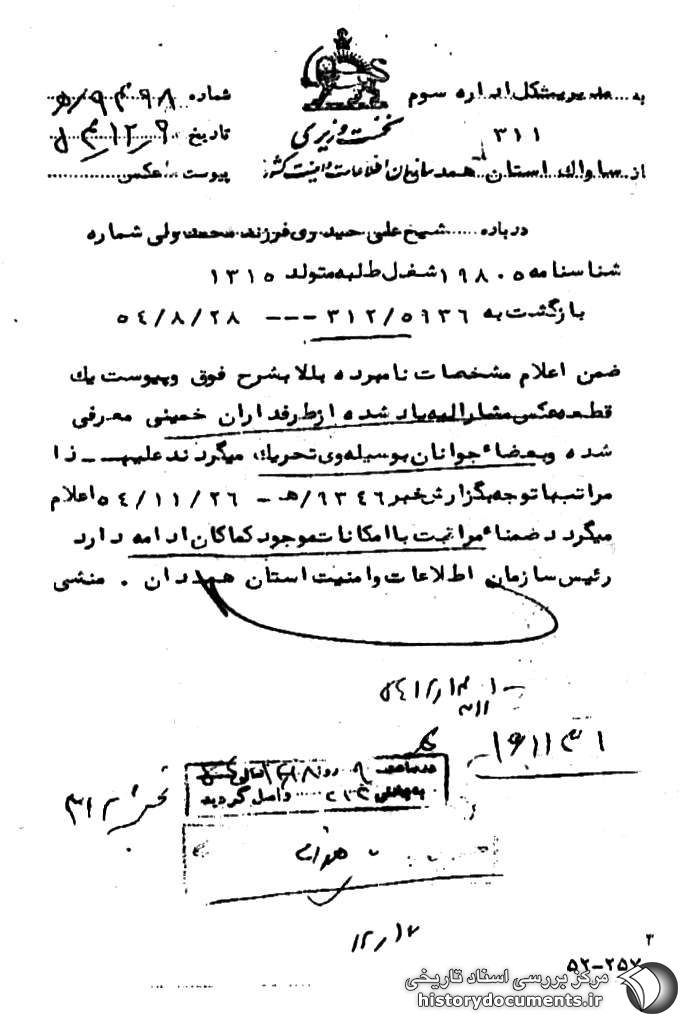 به مدیریت کل اداره سوم
۳۱۱
نخست وزیری
شماره ۹۴۹۸/ه
تاریخ
از ساواک استان همدان
سازمان اطلاعات و امنیت کشور
پیوست عکس
درباره شیخ علی حیدری فرزند محمدولی شماره
شناسنامه ۱۹۸۰۵ شغل طلبه متولد ۱۳۱۵
بازگشت به ۳۱۲/۵۹۳۶ --- ۵۴/۸/۲۸
ضمن اعلام مشخصات نامبرده بالا بشرح فوق و پیوست یک
قطعه عکس مشارالیه یاد شده از طرفداران خمینی معرفی
شده و بعضا جوانان بوسیله وی تحریک میگردند علیهـــذا
مراتب با توجه بگزارش خبر ۹۳۴۶/هـ - ۵۴/۱۱/۲۶ اعلام
میگردد ضمناً مراقبت با امکانات موجود کماکان ادامه دارد
رئیس سازمان اطلاعات و امنیت استان همدان . منشی
۳۱۱
در ساعت ۹ روز
به بخش ۳۱۲ واصل گردید
بخش ۳۱۲
همدان
۱۲/۱۷
۳
۵۲-۲۵۷
مرکز بررسی اسناد تاریخی
historydocuments.ir